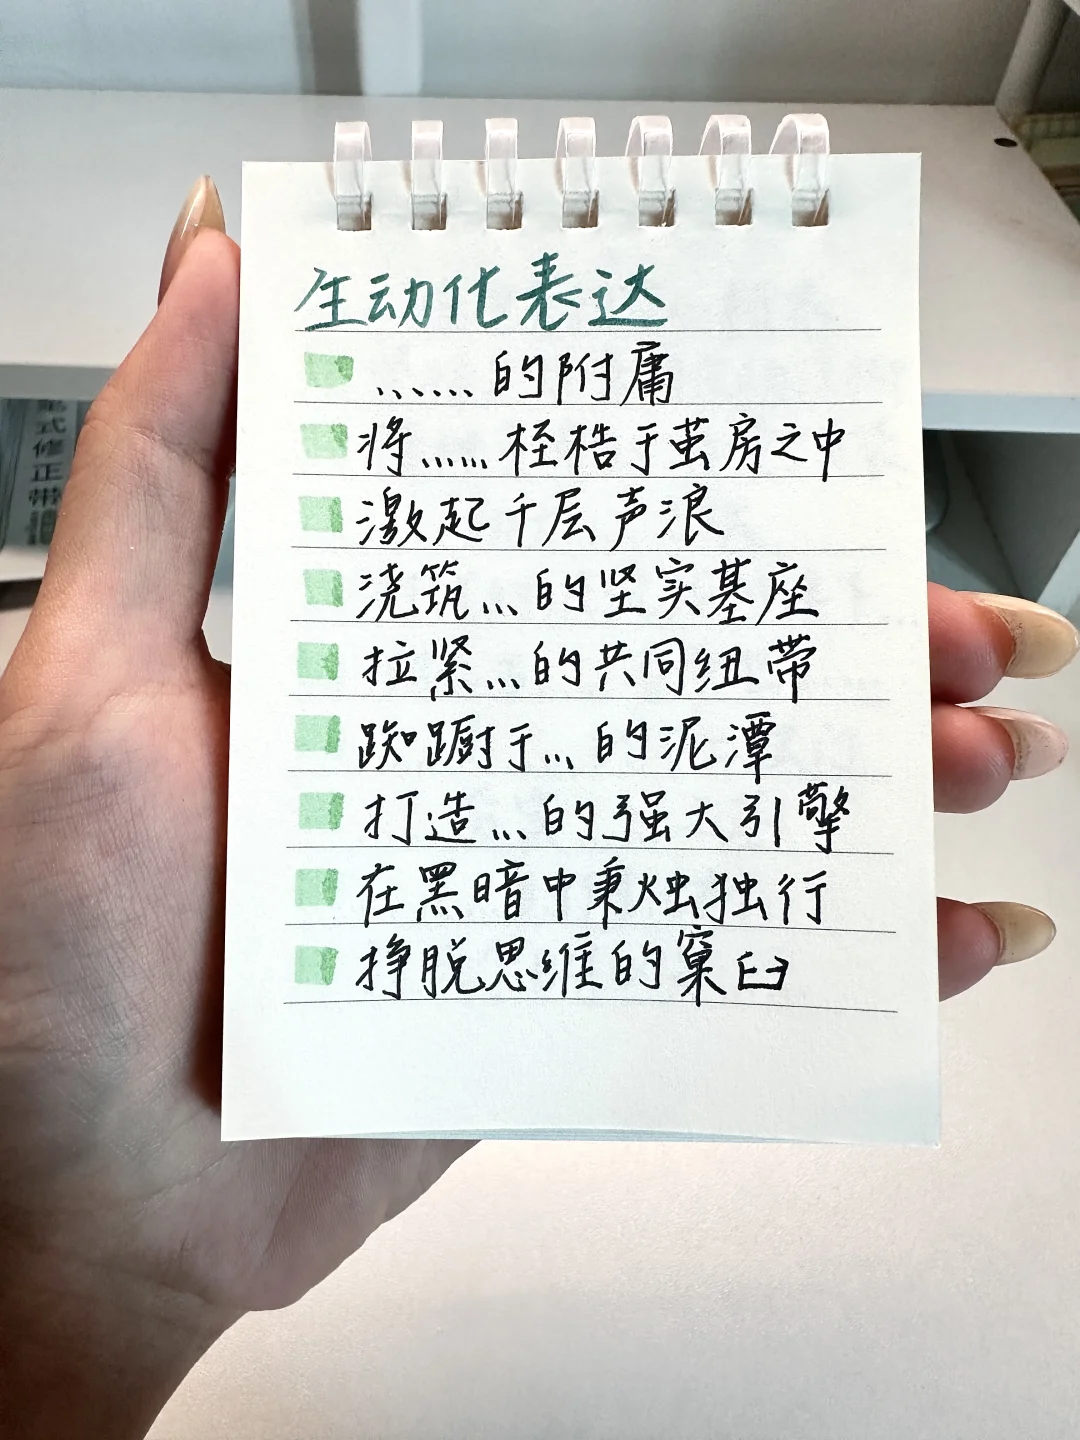 生动化表达
......的附庸
将......桎梏于茧房之中
激起千层声浪
浇筑...的坚实基座
拉紧...的共同纽带
踟蹰于...的泥潭
打造...的强大引擎
在黑暗中秉烛独行
挣脱思维的窠臼
式修正带